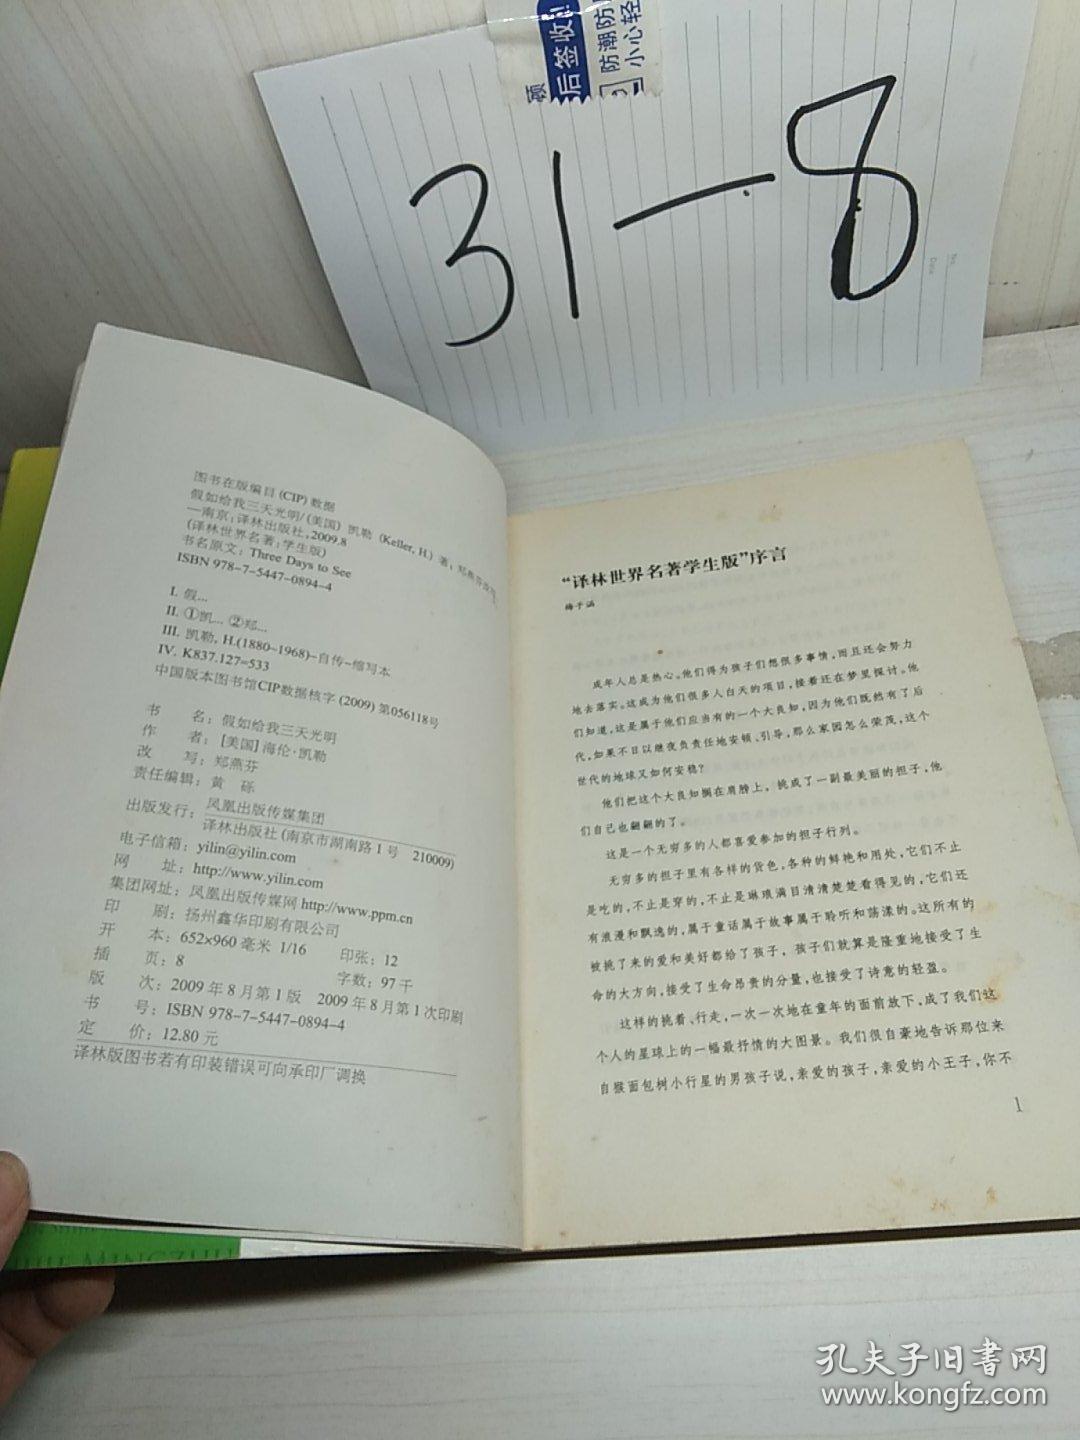 后签收!!
防潮防
小心轻
31-8
No.
Date
图书在版编目(CIP)数据
假如给我三天光明/(美国)凯勒(Keller, H.)著;郑燕芬
—南京:译林出版社,2009.8
(译林世界名著:学生版)
书名原文:Three Days to See
ISBN 978-7-5447-0894-4
I. 假...
II. ①凯... ②郑...
III. 凯勒, H.(1880~1968)-自传-缩写本
IV. K837.127=533
中国版本图书馆CIP数据核字(2009)第056118号
书 名:假如给我三天光明
作 者:[美国]海伦·凯勒
改 写:郑燕芬
责任编辑:黄 砾
出版发行:凤凰出版传媒集团
译林出版社(南京市湖南路1号 210009)
电子信箱:yilin@yilin.com
网 址:http://www.yilin.com
集团网址:凤凰出版传媒网http://www.ppm.cn
印 刷:扬州鑫华印刷有限公司
开 本:652×960毫米 1/16 印张:12
插 页:8 字数:97千
版 次:2009年8月第1版 2009年8月第1次印刷
书 号:ISBN 978-7-5447-0894-4
定 价:12.80元
译林版图书若有印装错误可向承印厂调换
“译林世界名著学生版”序言
梅子涵
成年人总是热心。他们得为孩子们想很多事情,而且还会努力
地去落实。这成为他们很多人白天的项目,接着还在梦里探讨。他
们知道,这是属于他们应当有的一个大良知,因为他们既然有了后
代,如果不日以继夜负责任地安顿、引导,那么家园怎么荣茂,这个
世代的地球又如何安稳?
他们把这个大良知搁在肩膀上,挑成了一副最美丽的担子,他
们自己也翩翩的了。
这是一个无穷多的人都喜爱参加的担子行列。
无穷多的担子里有各样的货色,各种的鲜艳和用处,它们不止
是吃的,不止是穿的,不止是琳琅满目清清楚楚看得见的,它们还
有浪漫和飘逸的,属于童话属于故事属于聆听和荡漾的。这所有的
被挑了来的爱和美好都给了孩子,孩子们就算是隆重地接受了生
命的大方向,接受了生命昂贵的分量,也接受了诗意的轻盈。
这样的挑着、行走,一次一次地在童年的面前放下,成了我们这
个人的星球上的一幅最抒情的大图景。我们很自豪地告诉那位来
自猴面包树小行星的男孩子说,亲爱的孩子,亲爱的小王子,你不
1
孔夫子旧书网
www.kongfz.com